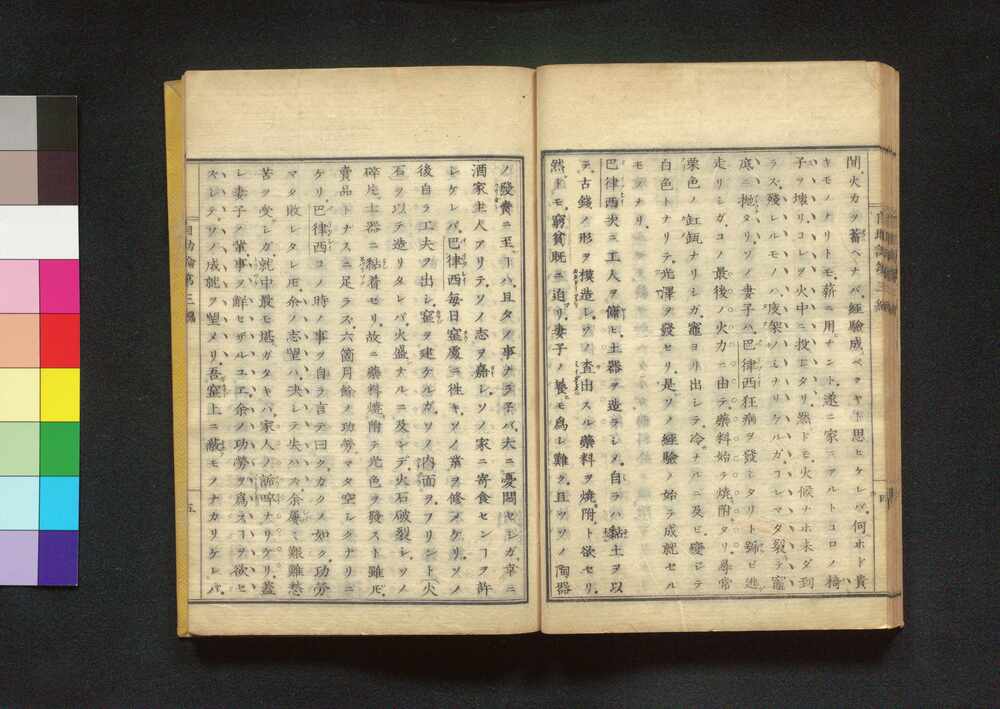 間、火力ヲ蓄ヘナバ、經驗成ベクヤト思ヒケレバ、何ホド貴
キモノナリトモ、薪ニ用ヰナント、遂ニ家ニアルトコロノ椅
子ヲ壊リコレヲ火中ニ投ジタリ、然ドモ火候ナホ未ダ到
ラズ、殘レルモノハ、庋架ノミナリケルガ、コレマタ裂テ竈
底ニ抛タリ、ソノ妻子ハ、巴律西狂病ヲ發シタリト號ビ迯
走リシガ、コノ最後ノ火力ニ由テ、藥料始テ燒附タリ、尋常
栗色ノ缸瓶ナリシガ、竈ヨリ出シテ、冷ナルニ及ビ、變ジテ
白色トナリテ、光澤ヲ發セリ、是ソノ經驗ノ始テ成就セル
モノナリ
巴律西夾ニ工人ヲ傭ヒ、土器ヲ造ラシメ、自ラハ黏土ヲ以
テ、古錢ノ形ヲ模造シ、ソノ査出スル藥料ヲ燒附ント欲セリ、
然トモ、窮貧既ニ迫リ、妻子ノ養モ爲シ難ク、且ツソノ陶器
ノ發賣ニ至ルハ、且タノ事ナラ子バ、大ニ憂悶セシガ、幸ニ
酒家主人アリテソノ志ヲ嘉シ、ソノ家ニ寄食センヿヲ許
シケレバ、巴律西毎日窒處ニ徃キ、ソノ業ヲ修メケリ、ソノ
後自ラ工夫ヲ出シ、窒ヲ建ケルガ、ソノ内面ヲ、フリント火
石ヲ以テ造リタレバ、火盛ナルニ及ンデ、火石破裂シ、ソノ
碎片土器ニ黏着セリ、故ニ藥料燒附テ光色ヲ發スト雖ドモ、
賣品トナスニ足ラズ、六箇月餘ノ功勞、マタ空シクナリニ
ケリ、巴律西コノ時ノ事ヲ自ラ言テ曰ク、カクノ如ク、功労
マタ敗レタレドモ、余ノ志望ハ、決シテ失ハズ、余屢々艱難愁
苦ヲ受シガ、就中最モ堪ガタキハ、家人ノ詬啐ナリケリ、蓋
シ妻子ノ輩事ヲ鮮セザルユヱ、余ノ功勞ヲ爲スヿヲ欲セ
ズシテ、ソノ成就ヲ望メリ、吾窒上ニ蔽モノナカリケレバ、
自助論第三編
五